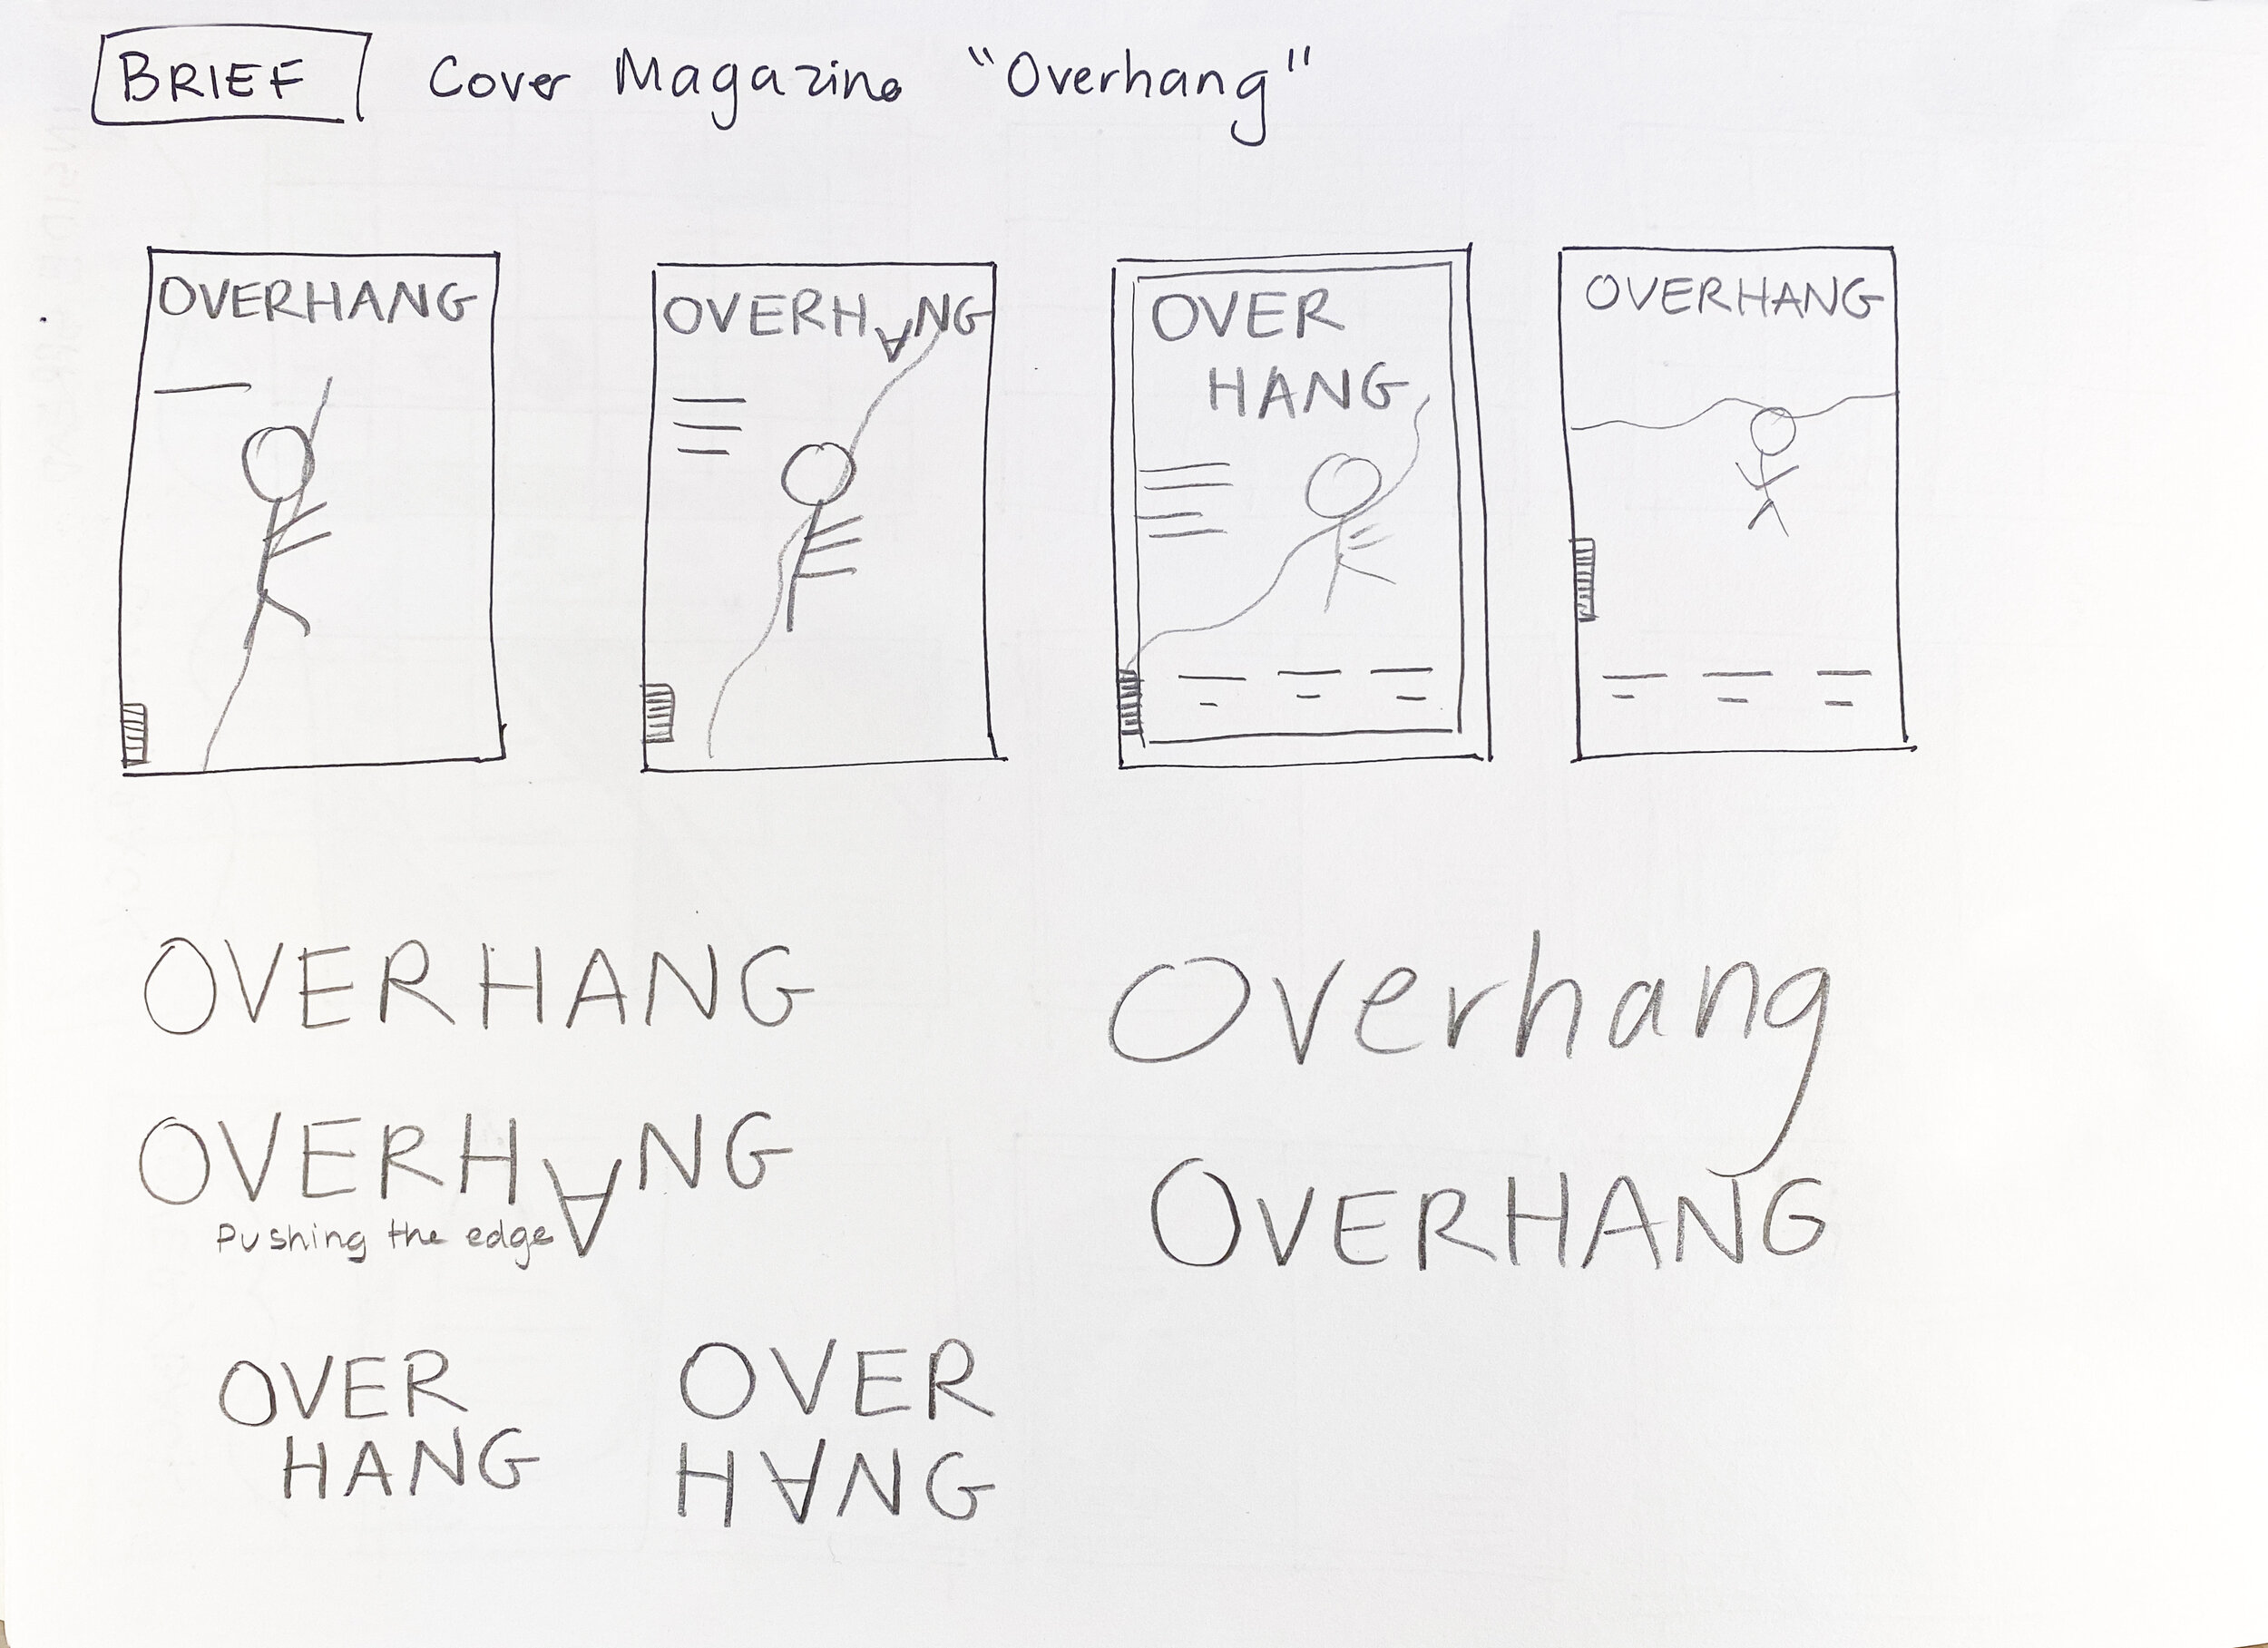 BRIEF Cover Magazine "Overhang"
OVERHANG
OVERH∀NG
OVER
HANG
OVERHANG
OVERHANG
OVERH∀NG
Pushing the edge
OVER
HANG
OVER
H∀NG
Overhang
OVERHANG